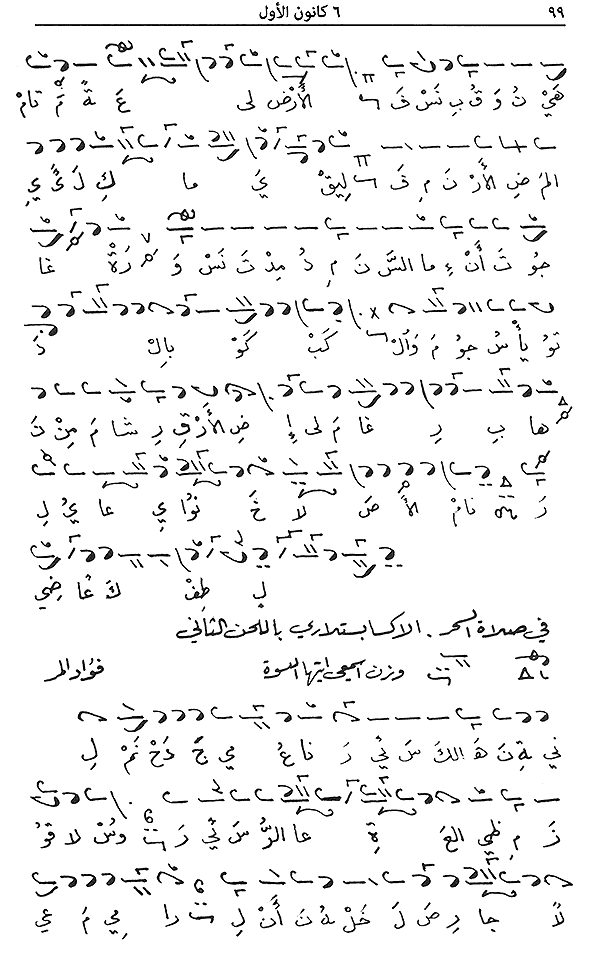 ٩٩ ٦ كانون الأول
هَيْ تُ وَ قُ بِ نَسْ فَ الأَرْضِ لى عَ ةً مَّ تامْ
المَ ضِ الأَرْ نَ مِ فَ لِيقْ يَ ما كِ لَ ئِ ي
جو تَ أَنْ ءِ ما السَّ نَ مِ دُ مِدْ تَ نَسْ وَ رَةْ غا
تو يأْ سُ جو مَ وَآلْ كَبْ كَوْ بِالْ دَ
ها بِ رِ غا مَ لى إِ ضِ الأَرْ قِ رِ شا مَ مِنْ نَ
رَ نامْ الأَ صَ لا خَ نَوُا يِ عا يُ لِ
لِ طِفْ كَ عًا ضِي
في صلاة السحر . الاكسابستلاري باللحن الثاني
وزن اسمعي ايتها النسوة فؤاد المر
ني يةِ نَ هَا لكَ سَ ني رَ ناعُ مي جَ دَخْ نَمْ لِ
زَ مِ ظي العَ ةِ عا الرُّ سَ ني رَ وسْ لا قو
لاً جا رِ صَ لَ خَلْ هُ تَ أَنْ لِ دا مي مَ عي